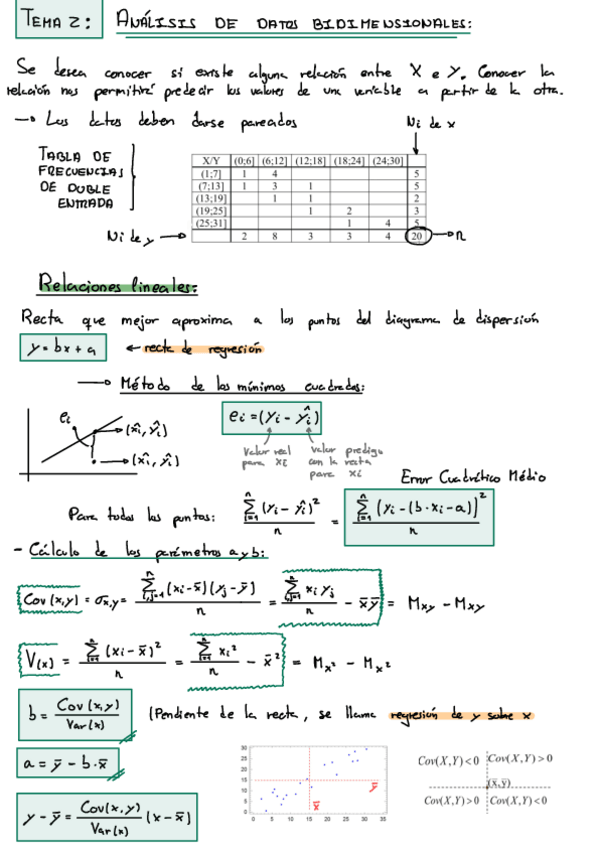 TEMA 2: ANÁLISIS DE DATOS BIDIMENSIONALES:
Se desea conocer si existe alguna relación entre X e Y. Conocer la
relación nos permitirá predecir los valores de una variable a partir de la otra.
→ Los datos deben darse pareados
Ni de x
TABLA DE
FRECUENCIAS
DE DOBLE
ENTRADA
X/Y (0;6] (6;12] (12;18] (18;24] (24;30]
(1;7] 1 4 5
(7;13] 1 3 1 5
(13;19] 1 1 2
(19;25] 1 2 3
(25;31] 1 4 5
Ni de y → 2 8 3 3 4 20 → n
Relaciones lineales:
Recta que mejor aproxima a los puntos del diagrama de dispersión
y = bx + a ← recta de regresión
→ Método de los mínimos cuadrados:
ei
(x̂i, ŷi)
(x̂i, ŷi)
ei = (yi - ŷi)
valor real para xi
valor predigo con la recta para xi
Error Cuadrático Médio
Para todos los puntos: Σ(i=1, n) (yi - ŷi)² / n = Σ(i=1, n) (yi - (b·xi - a))² / n
- Cálculo de los parámetros a y b:
Cov(x,y) = σx,y = Σ(i,j=1, n) (xi - x̄)(yj - ȳ) / n = Σ(i,j=1, n) xi yj / n - x̄ȳ = Mxy - Mxy
V(x) = Σ(i=1, n) (xi - x̄)² / n = Σ(i=1, n) xi² / n - x̄² = Mx² - Mx²
b = Cov(x,y) / Var(x) (Pendiente de la recta, se llama regresión de y sobre x
a = ȳ - b·x̄
y - ȳ = Cov(x,y) / Var(x) (x - x̄)
30
25
20
15
10
5
0
0 5 10 15 20 25 30 35
x̄
ȳ
Cov(X,Y)<0 Cov(X,Y)>0
(x̄,ȳ)
Cov(X,Y)>0 Cov(X,Y)<0